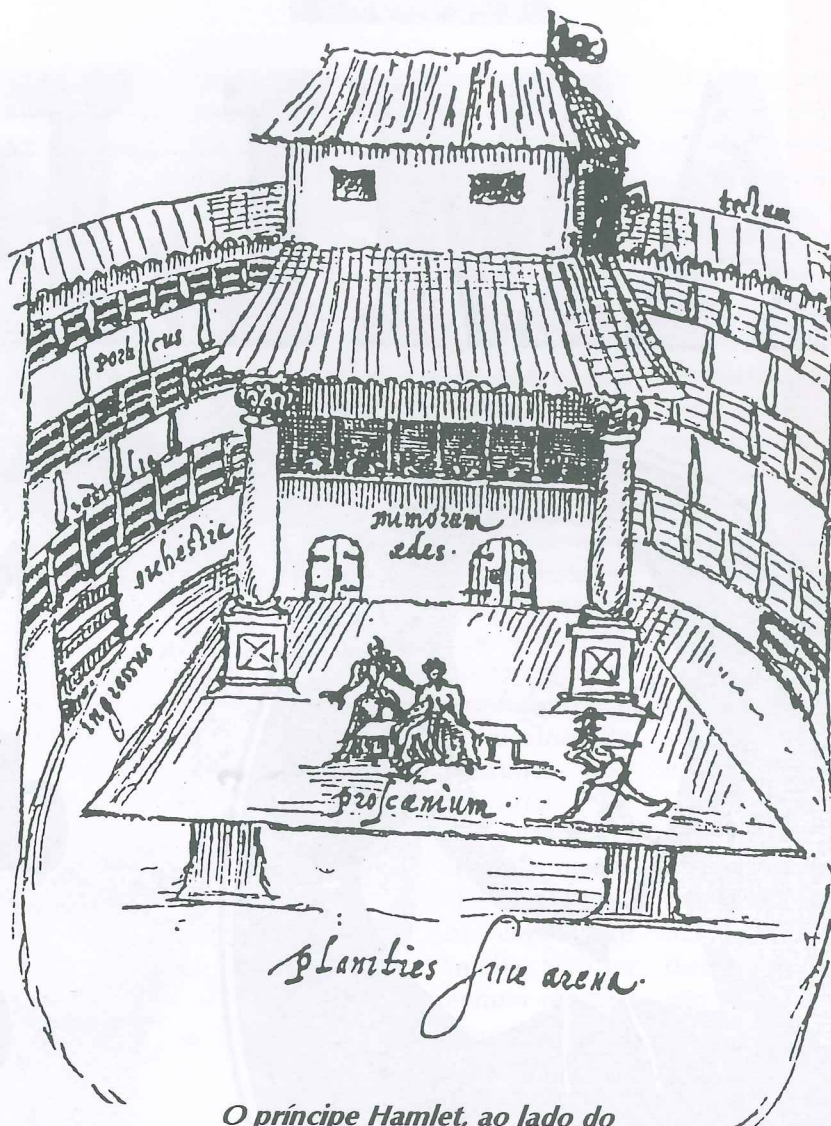 tectum
porticus
orchestra
mimorum
ædes·
ingressus
proscænium·
planities sive arena·
O príncipe Hamlet, ao lado do